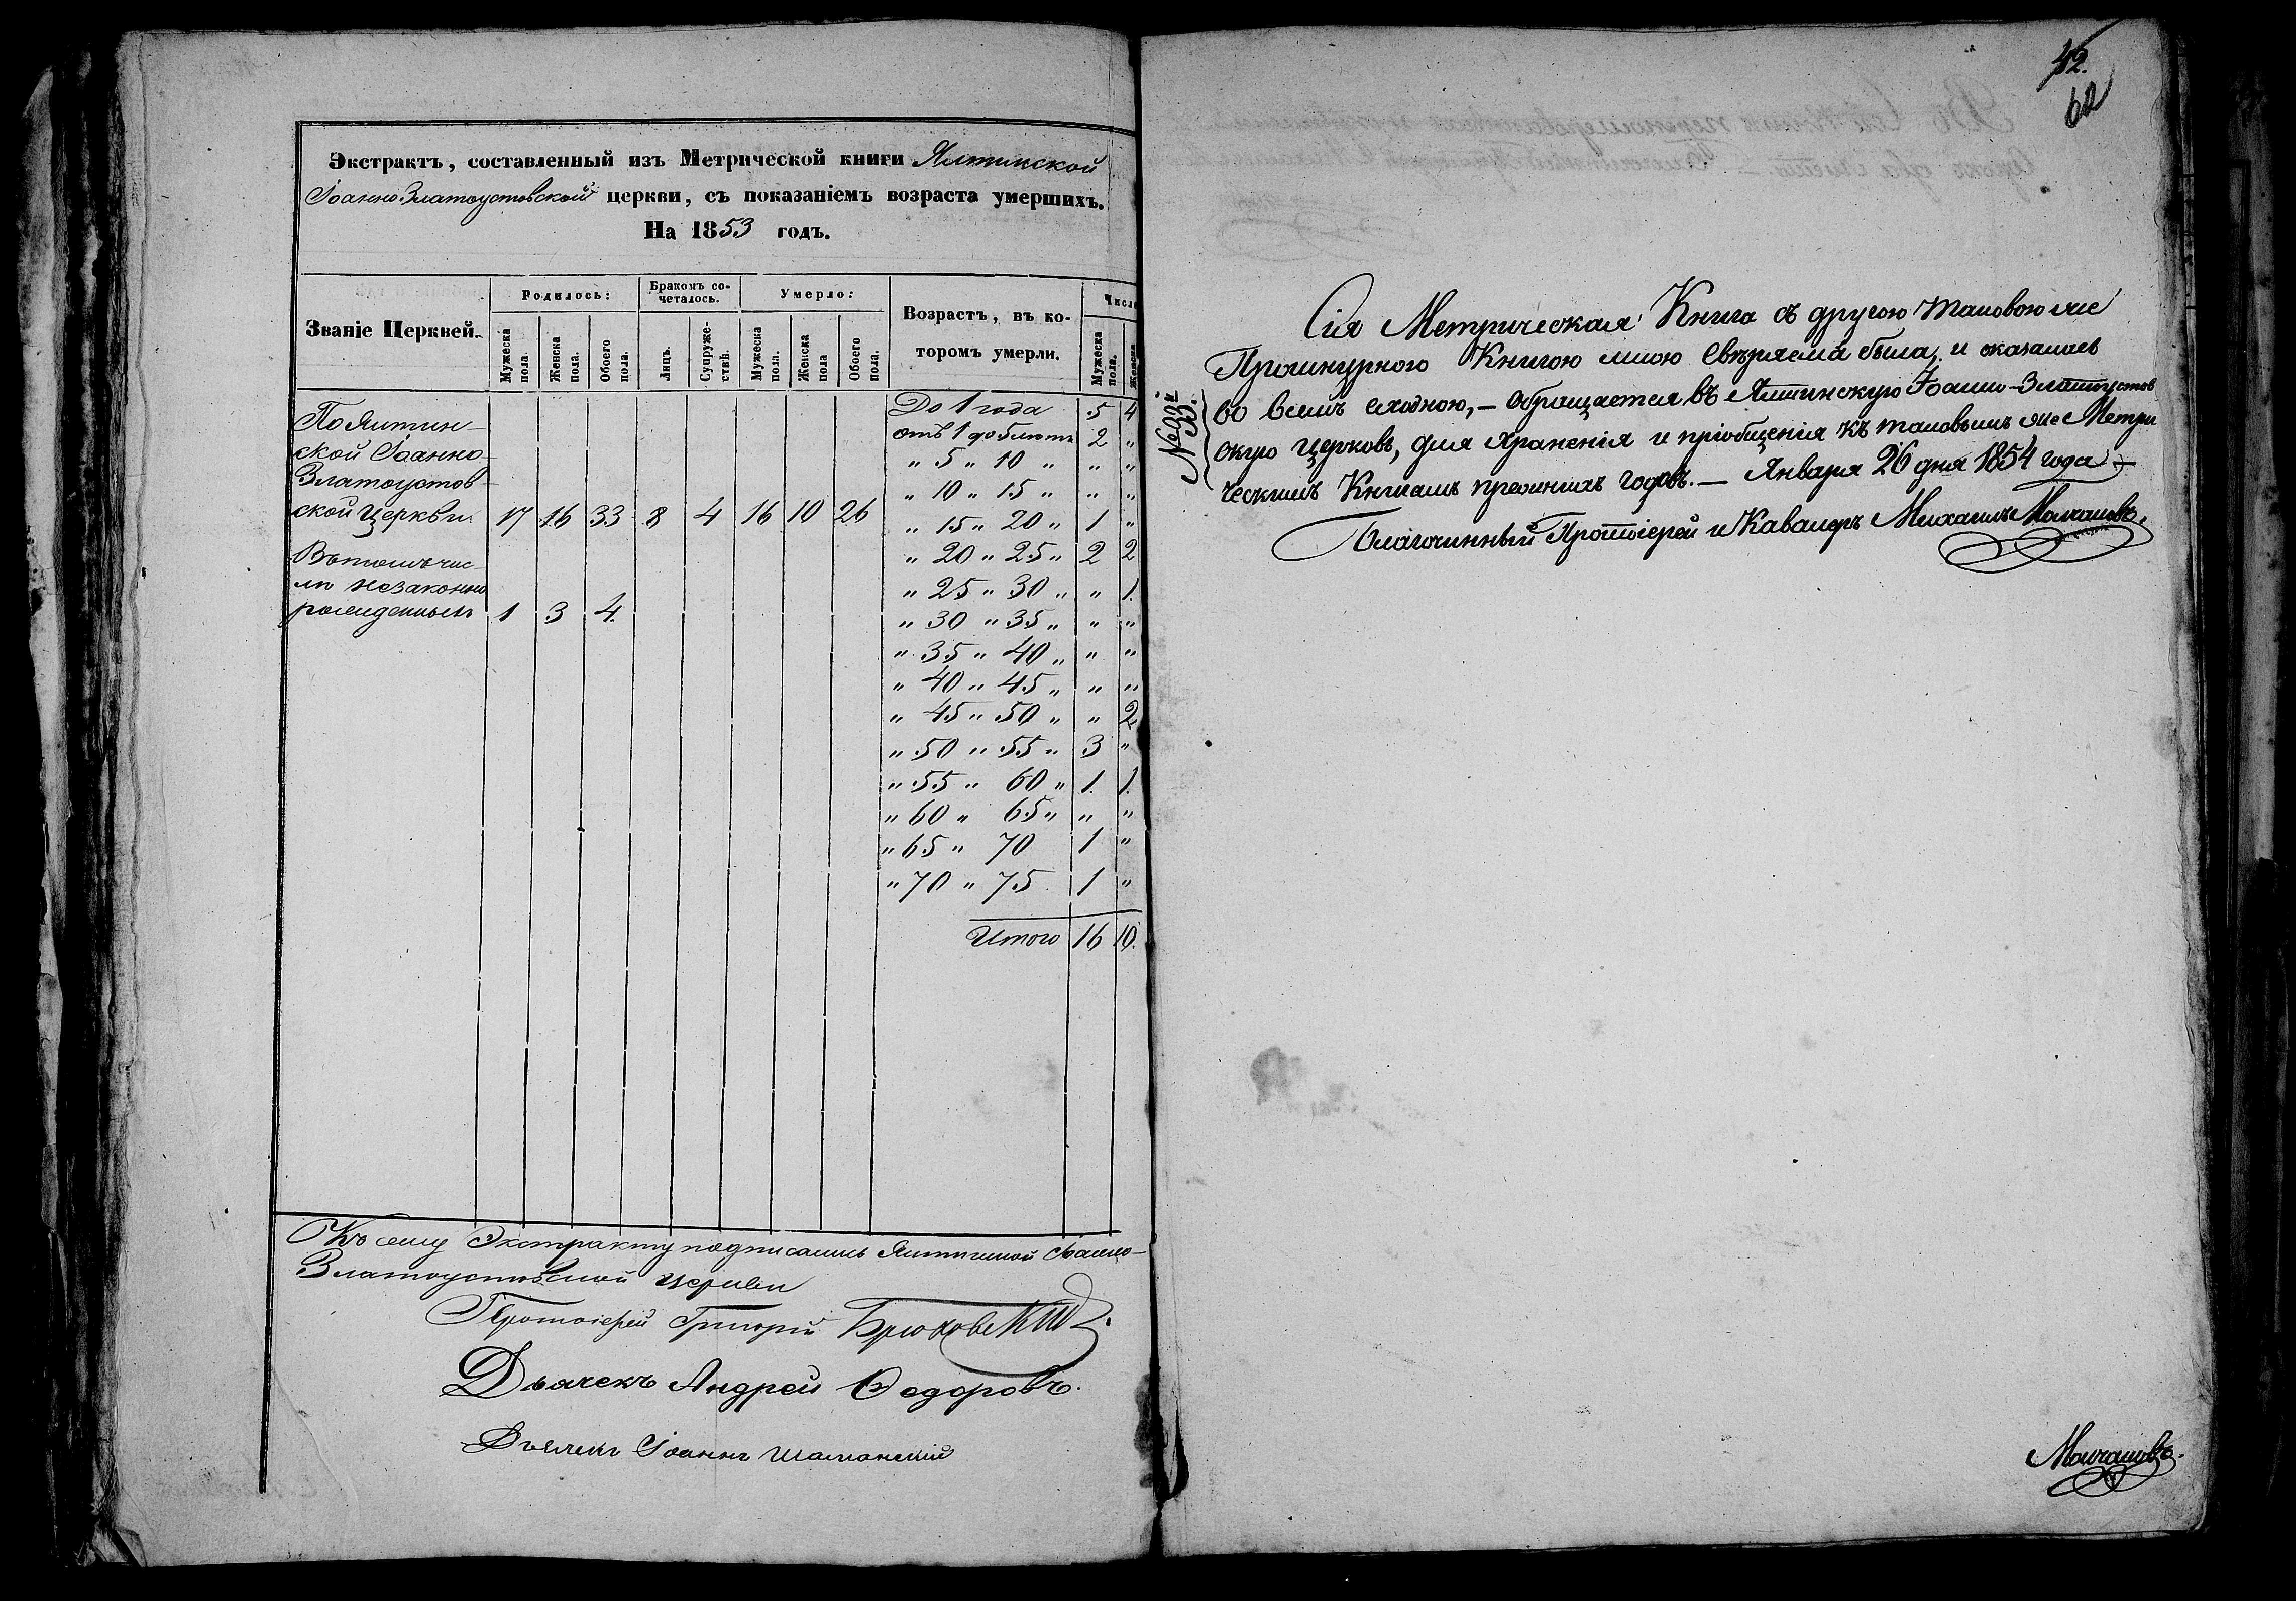 Экстрактъ, составленный изъ Метрической книги Ялтинской
Іоанно Златоустовской церкви, съ показаніемъ возраста умершихъ.
На 1853 годъ.
Званіе Церквей.
Родилось:
Бракомъ сочеталось.
Умерло:
Возрастъ, въ котором умерли.
Число
Мужеска пола
Женска пола.
Обоего пола.
Лицъ.
Супружествъ.
Мужеска пола.
Женска пола
Обоего пола.
Мужеска пола.
Женска
По Ялтин-
ской Іоанно-
Златоустов-
ской церкви. 17 16 33 8 4 16 10 26
Въ томъ чис-
лѣ незаконно
рожденныхъ 1 3 4.
До 1 года 5 4
отъ 1 до 5 лѣтъ 2 "
" 5 " 10 " " "
" 10 " 15 " " "
" 15 " 20 " 1 "
" 20 " 25 " 2 2
" 25 " 30 " " 1.
" 30 " 35 " " "
" 35 " 40 " " "
" 40 " 45 " " "
" 45 " 50 " " 2
" 50 " 55 " 3 "
" 55 " 60 " 1. 1.
" 60 " 65 " " "
" 65 " 70 1 "
" 70 " 75 1 "
Итого 16 10.
Къ сему Экстракту подписались Ялтинской Іоанно-
Златоустовской церкви
Протоіерей Григорій
Дьячекъ Андрей Ѳедоровъ.
Дьячекъ Іоаннъ Шаманскій
42.
62
№ 93й
Сія Метрическая Книга съ другою таковою же
Прошнурною Книгою мною свѣряема была, и оказалась
во всемъ сходною, – обращается въ Ялтинскую Іоанно-Златоустов
скую церковь, для храненія и пріобщенія къ таковымъ же Метри
ческимъ Книгамъ прежнихъ годовъ. — Января 26 дня 1854 года —
Благочинный Протоіерей и Кавалеръ Михаилъ Молчановъ.
Молчановъ.